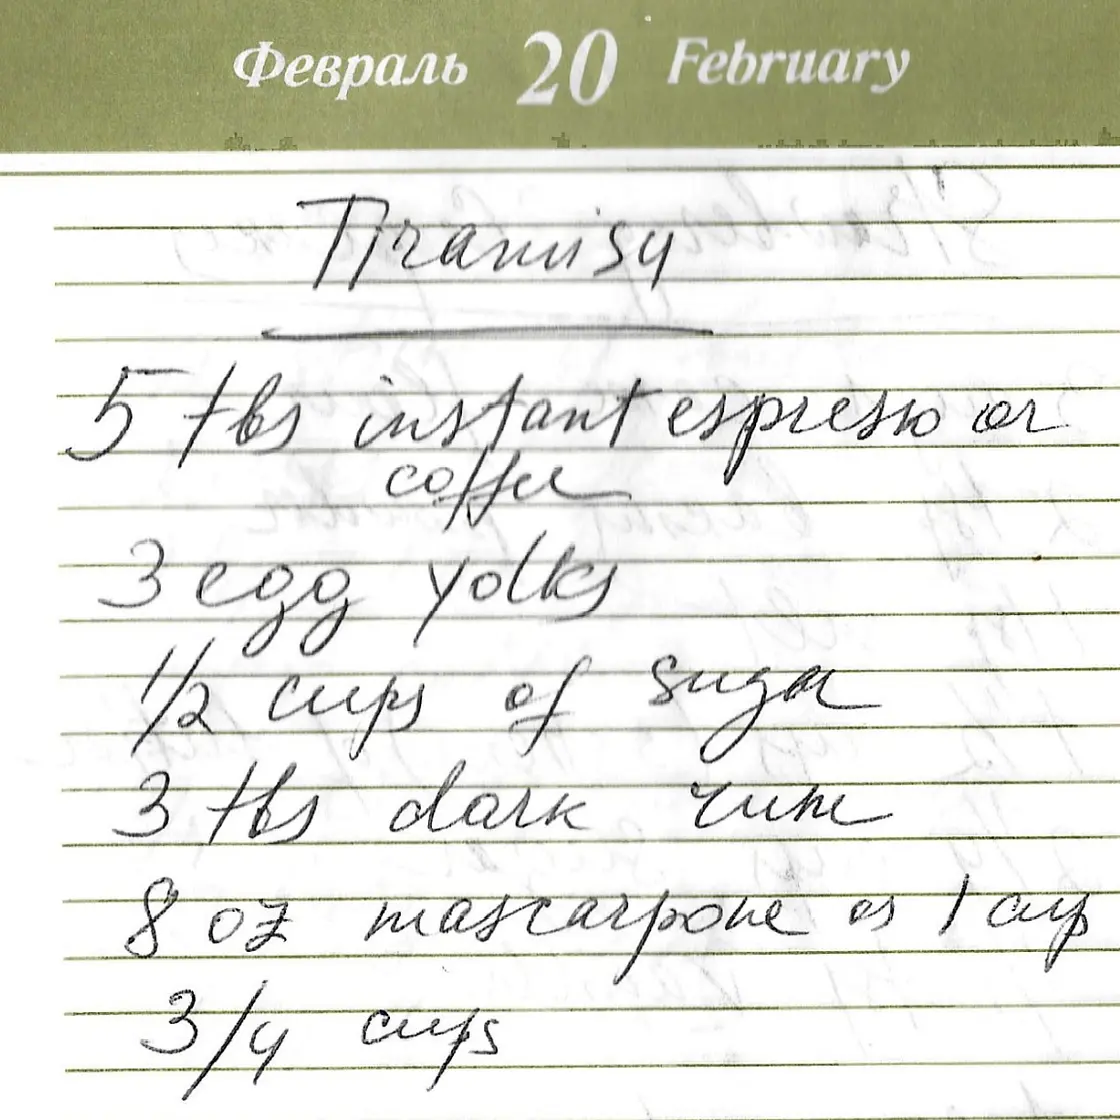 Февраль 20 February
Tiramisy
5 tbs instant espresso or
coffee
3 egg yolks
1/2 cups of sugar
3 tbs dark rum
8 oz mascarpone or 1 cup
3/4 cups